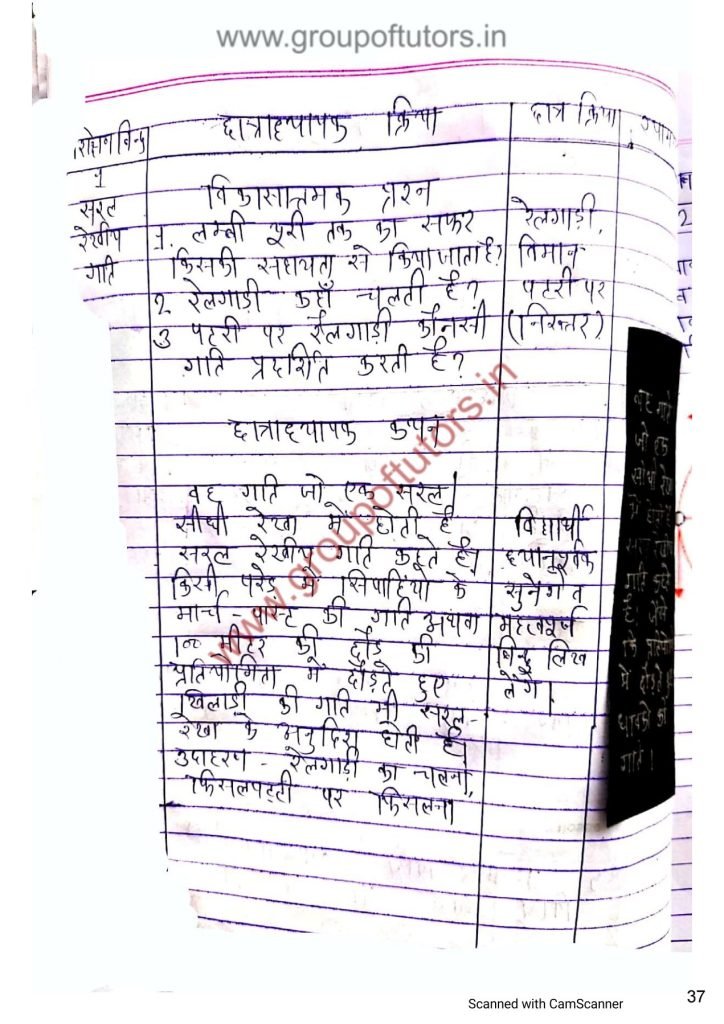 www.groupoftutors.in
छात्राध्यापक क्रिया
छात्र क्रिया
शिक्षण बिन्दु
1
सरल
रेखीय
गति
विकासात्मक प्रश्न
1. लम्बी दूरी तक का सफर
किसकी सहायता से किया जाता है?
2 रेलगाड़ी कहाँ चलती है?
3 पटरी पर रेलगाड़ी कौनसी
गति प्रदर्शित करती है?
रेलगाड़ी,
विमान
पटरी पर
(निरुत्तर)
छात्राध्यापक कथन
वह गति जो एक सरल/
सीधी रेखा में होती है
सरल रेखीय गति कहते है।
किसी परेड में सिपाहियों के
मार्च-पास्ट की गति अथवा
100 मीटर की दौड़ की
प्रतियोगिता में दौड़ते हुए
खिलाड़ी की गति भी सरल-
रेखा के अनुदिश होती है।
उदाहरण - रेलगाड़ी का चलना,
फिसलपट्टी पर फिसलना
विद्यार्थी
ध्यानपूर्वक
सुनेंगे व
महत्वपूर्ण
बिन्दु लिख
लेंगे।
वह गति
जो एक
में
गति
गति।
www.groupoftutors.in
Scanned with CamScanner
37